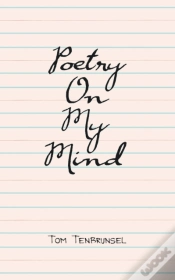 Poetry
On
My
Mind
TOM TENBRUNSEL
wook